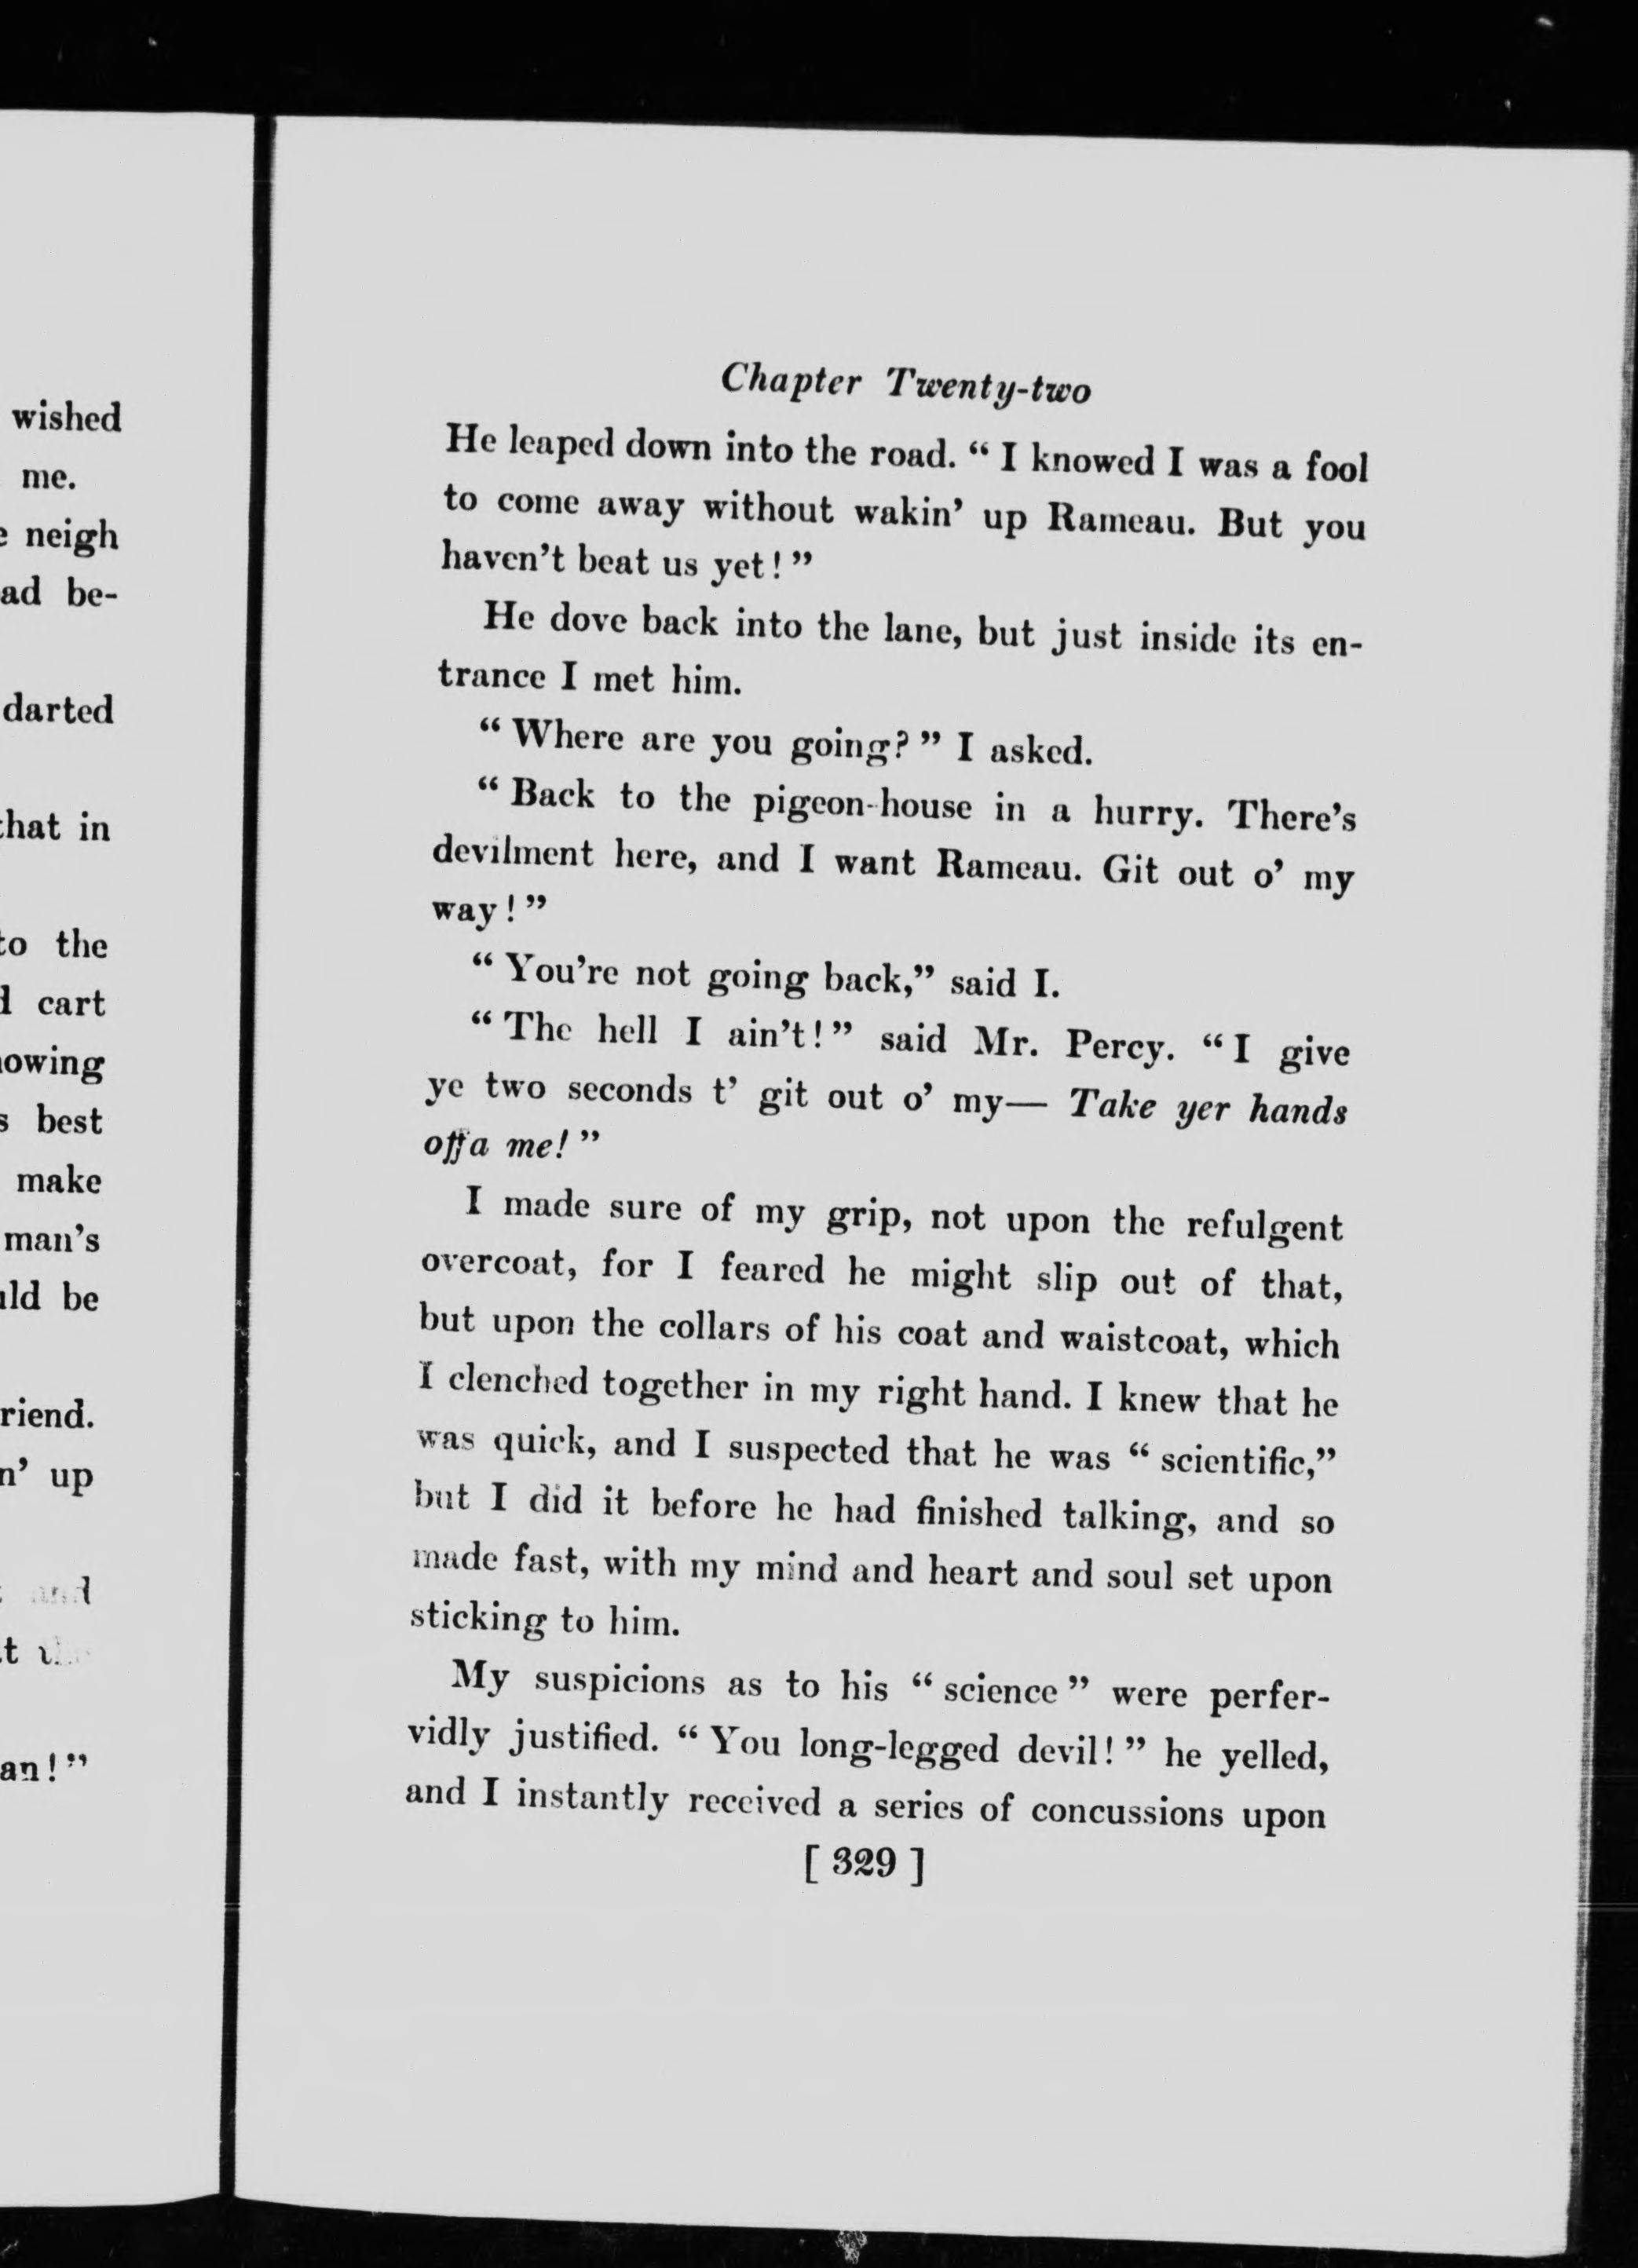 wished
me.
neigh
ad be-
darted
that in
to the
cart
owing
best
make
man's
ld be
riend.
n' up
and
t
an!"
Chapter Twenty-two
He leaped down into the road. " I knowed I was a fool
to come away without wakin' up Rameau. But you
haven't beat us yet! "
He dove back into the lane, but just inside its en-
trance I met him.
" Where are you going? " I asked.
" Back to the pigeon-house in a hurry. There's
devilment here, and I want Rameau. Git out o' my
way! "
" You're not going back," said I.
" The hell I ain't! " said Mr. Percy. " I give
ye two seconds t' git out o' my— Take yer hands
offa me! "
I made sure of my grip, not upon the refulgent
overcoat, for I feared he might slip out of that,
but upon the collars of his coat and waistcoat, which
I clenched together in my right hand. I knew that he
was quick, and I suspected that he was " scientific,"
but I did it before he had finished talking, and so
made fast, with my mind and heart and soul set upon
sticking to him.
My suspicions as to his " science " were perfer-
vidly justified. " You long-legged devil! " he yelled,
and I instantly received a series of concussions upon
[ 329 ]